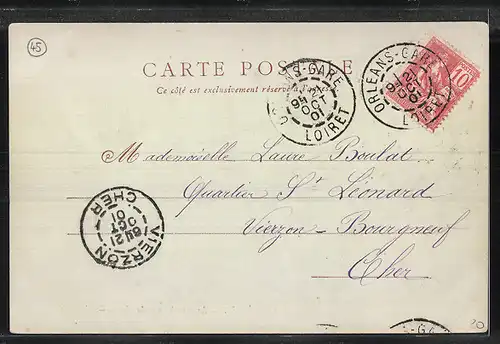 45
CARTE POSTALE
Ce côté est exclusivement réservé à l'adresse
ORLEANS-GARE
21
OCT
01
LOIRET
ORLEANS-GARE
OCT
LOIRET
10
Mademoiselle Laure Boulat
Quartier St Léonard
Vierzon-Bourgneuf
Cher
VIERZON
21
OCT
01
CHER
S-GA